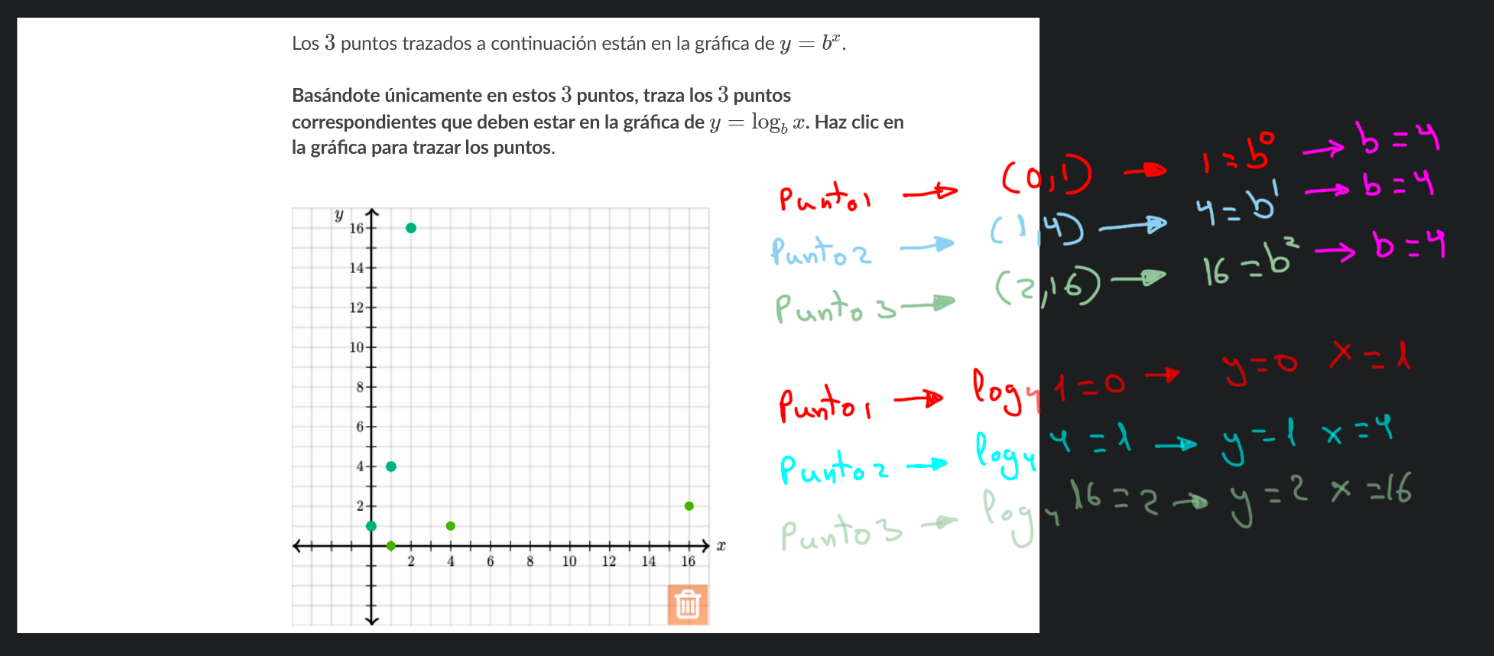 Los 3 puntos trazados a continuación están en la gráfica de y = b^x.
Basándote únicamente en estos 3 puntos, traza los 3 puntos
correspondientes que deben estar en la gráfica de y = log_b x. Haz clic en
la gráfica para trazar los puntos.
Punto 1 → (0,1) → 1 = b^0 → b = 4
Punto 2 → (1,4) → 4 = b^1 → b = 4
Punto 3 → (2,16) → 16 = b^2 → b = 4
y
16
14
12
10
8
6
4
2
x
2 4 6 8 10 12 14 16
Punto 1 → log_4 1 = 0 → y = 0 x = 1
Punto 2 → log_4 4 = 1 → y = 1 x = 4
Punto 3 → log_4 16 = 2 → y = 2 x = 16